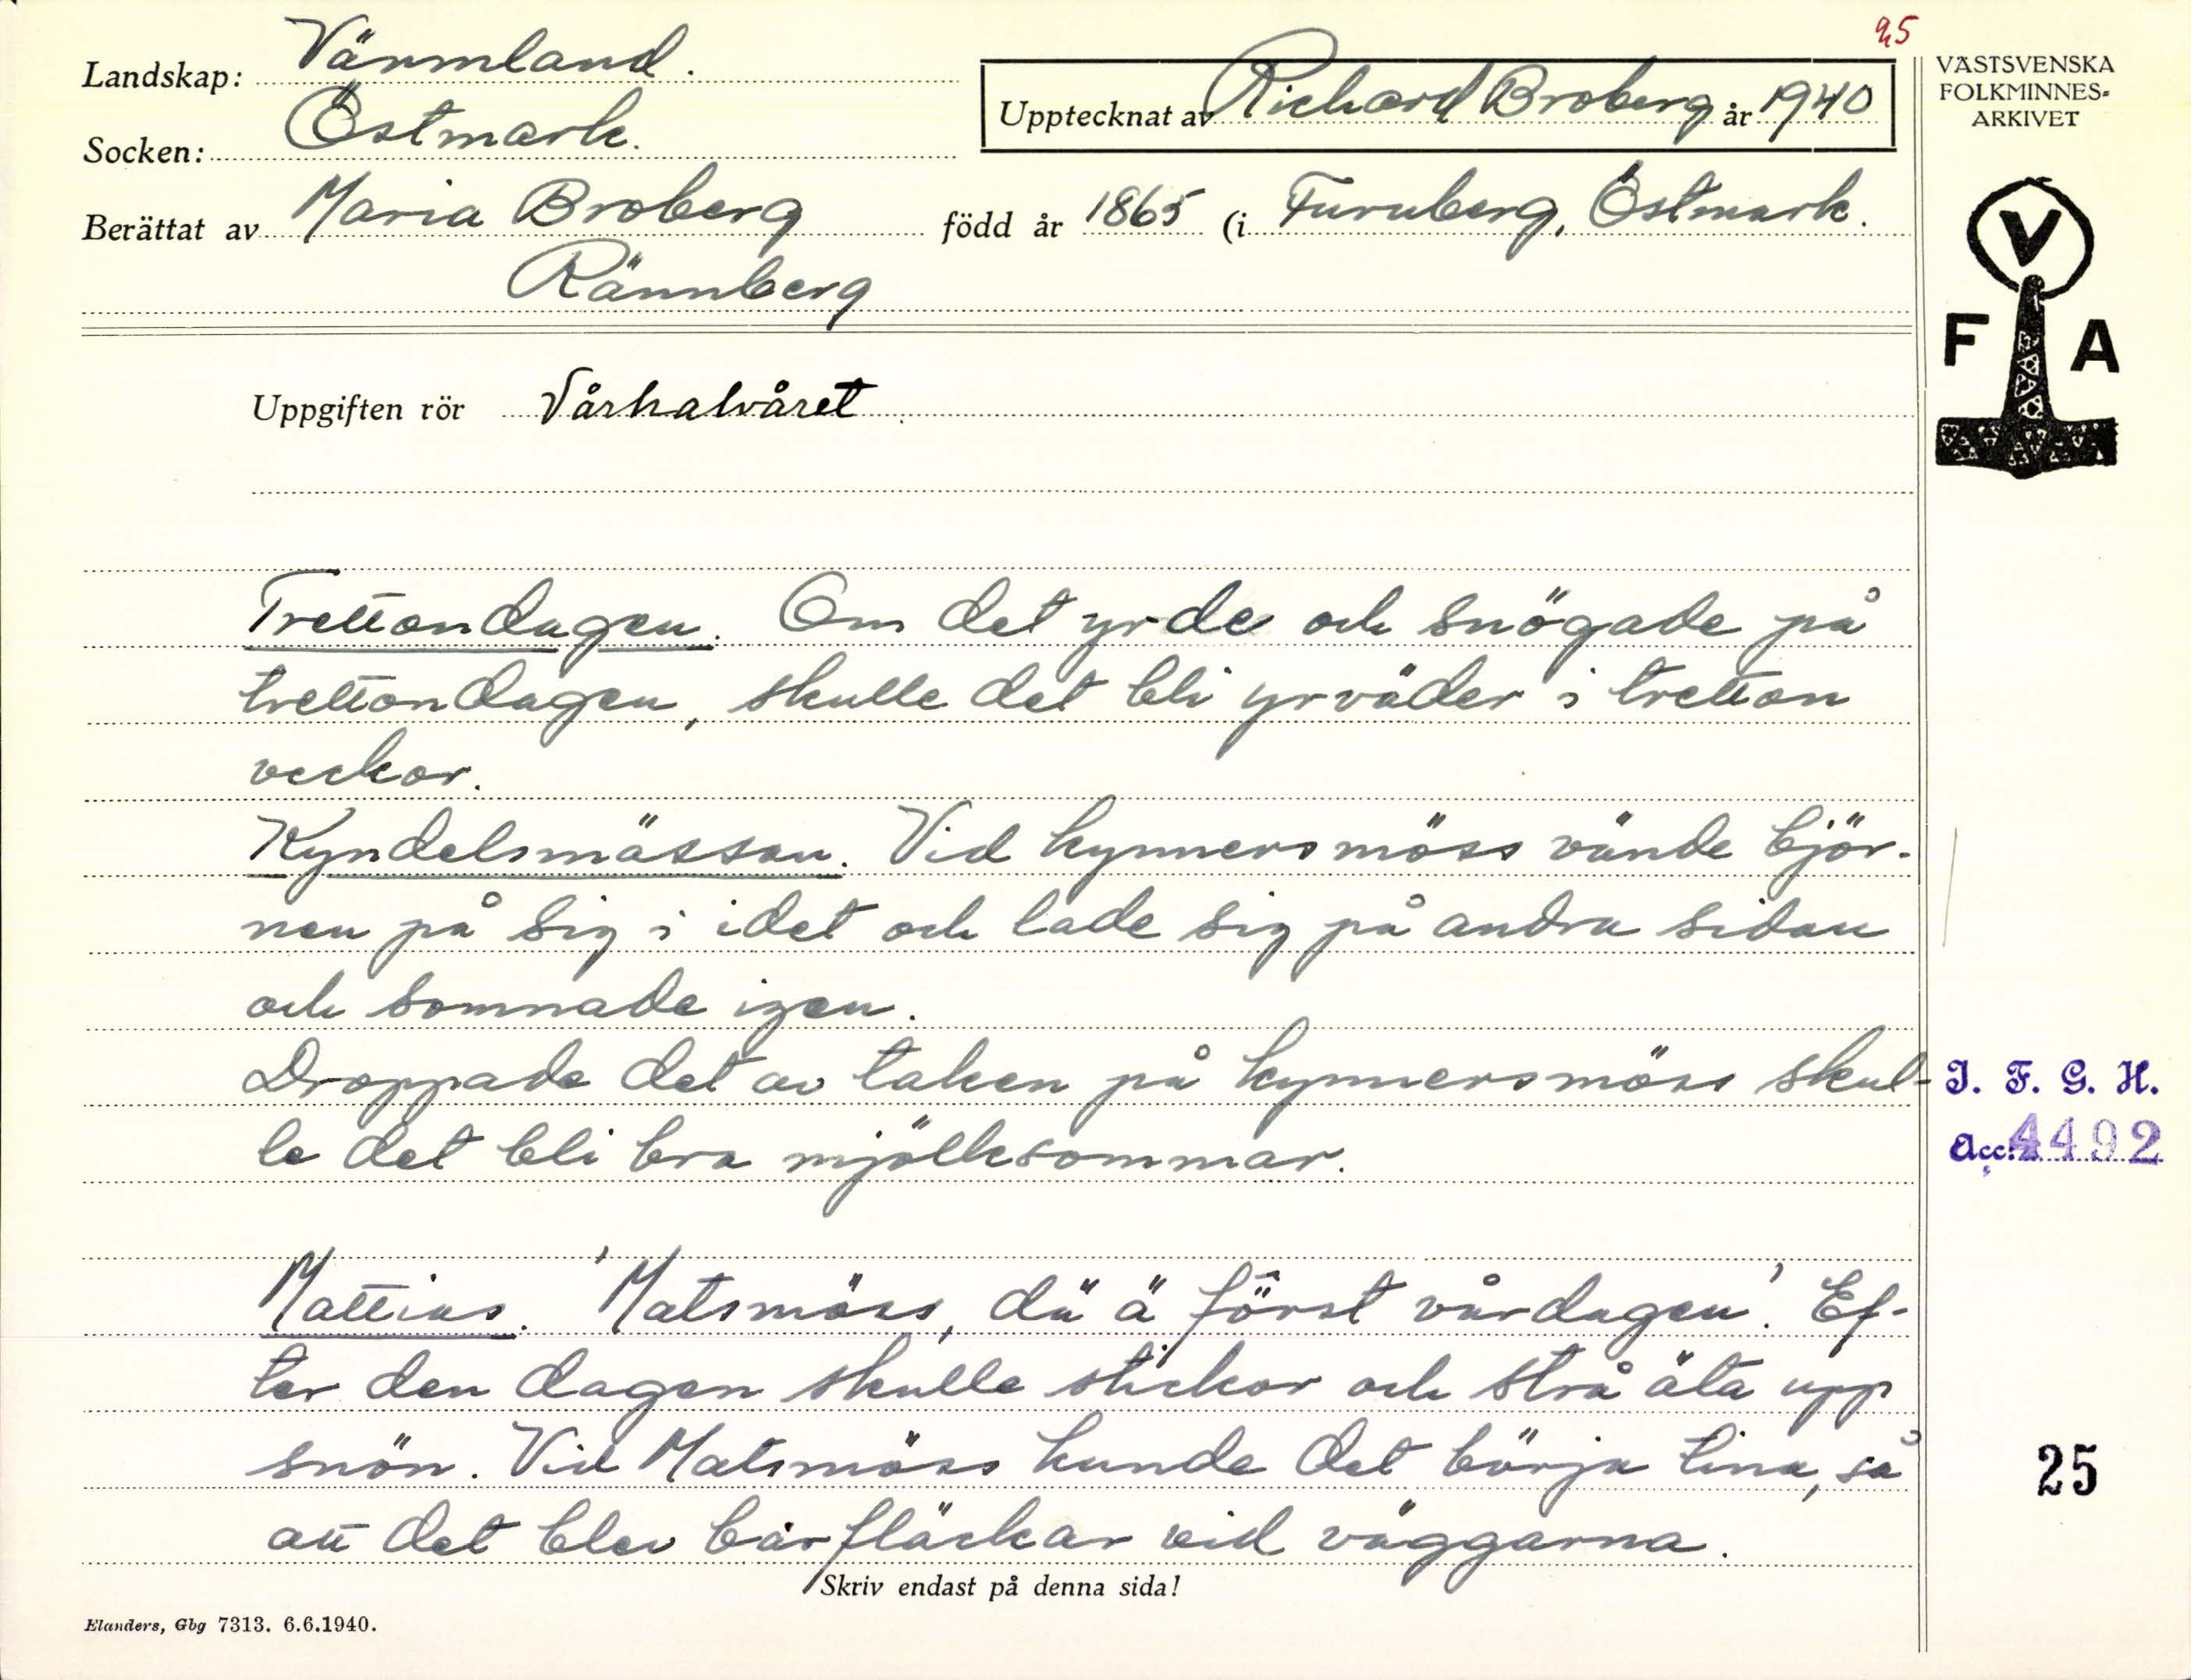 25
Landskap: Värmland.
Socken: Östmark.
Upptecknat av Richard Broberg år 1940
Berättat av Maria Broberg född år 1865 (i Furuberg, Östmark.
Rännberg
VÄSTSVENSKA
FOLKMINNES-
ARKIVET
V
F A
Uppgiften rör Vårhalvåret.
Trettondagen. Om det yrde och snögade på
trettondagen, skulle det bli yrväder i tretton
veckor.
Kyndelsmässan. Vid kynnersmöss vände björ-
nen på sig i idet och lade sig på andra sidan
och somnade igen.
Droppade det av taken på kynnersmöss skul-
le det bli bra mjölksommar.
Mattias. 'Matsmöss, dä ä först vårdagen'. Ef-
ter den dagen skulle stickor och strå äta upp
snön. Vid Matsmöss kunde det börja tina, så
att det blev barfläckar vid väggarna.
I. F. G. H.
Acc. 4492
25
Skriv endast på denna sida!
Elanders, Gbg 7313. 6.6.1940.